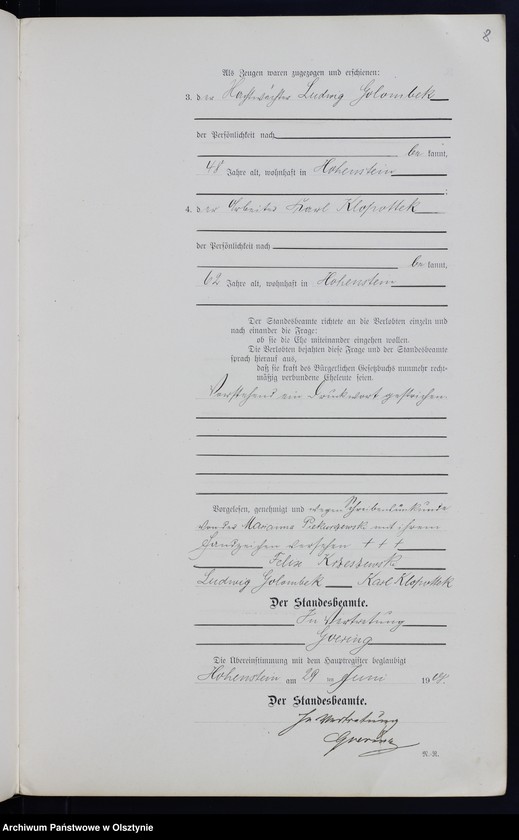 8
Als Zeugen waren zugezogen und erschienen:
3. der Ludwig Golombek
der Persönlichkeit nach
be kannt,
48 Jahre alt, wohnhaft in Hohenstein
;
4. der Arbeiter Karl Klopottek
der Persönlichkeit nach
be kannt,
62 Jahre alt, wohnhaft in Hohenstein
Der Standesbeamte richtete an die Verlobten einzeln und
nach einander die Frage:
ob sie die Ehe miteinander eingehen wollen.
Die Verlobten bejahten diese Frage und der Standesbeamte
sprach hierauf aus,
daß sie kraft des Bürgerlichen Gesetzbuchs nunmehr recht-
mäßig verbundene Eheleute seien.
Vorstehend ein Druckwort gestrichen.
Vorgelesen, genehmigt und wegen Schreibensunkunde
von der Marianna mit ihrem
Handzeichen versehen + + +
Felix Krzeszewski
Ludwig Golombek Karl Klopottek
Der Standesbeamte.
In Vertretung
Goering
Die Übereinstimmung mit dem Hauptregister beglaubigt
Hohenstein am 29 ten Juni 1904.
Der Standesbeamte.
In Vertretung
Goering
N.-R.
Archiwum Państwowe w Olsztynie